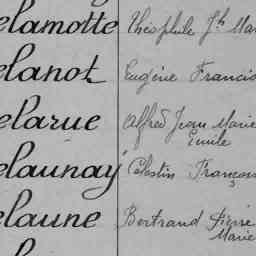 elamotte Théophile Jh Mar
elanot Eugène Francis
elarue Alfred Jean Marie
Emile
elaunay Célestin François
elaune Bertrand Pierre
Marie